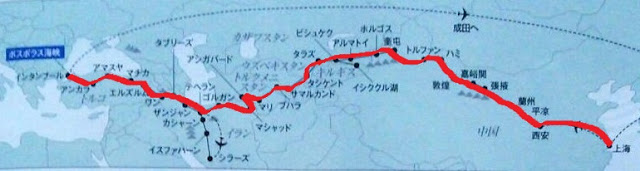 成田へ
ビシュケク
ホルゴス
カザフスタン
タラズ
アルマトイ
奎屯
トルファン
ハミ
ボスポラス海峡
タブリーズ
アシガバード
ウズベキスタン
キルギス
イスタンブール
アマスヤ
マチカ
トルクメニ
スタン
タシケント
嘉峪関
アンカラ
トルコ
エルズルム
テヘラン
サマルカンド
イシククル湖
敦煌
張掖
ワン
ゴルガン
マリ
ブハラ
蘭州
ザンジャン
平凉
カシャーン
イラン
マシャッド
中国
西安
イスファハーン
上海
シラーズ